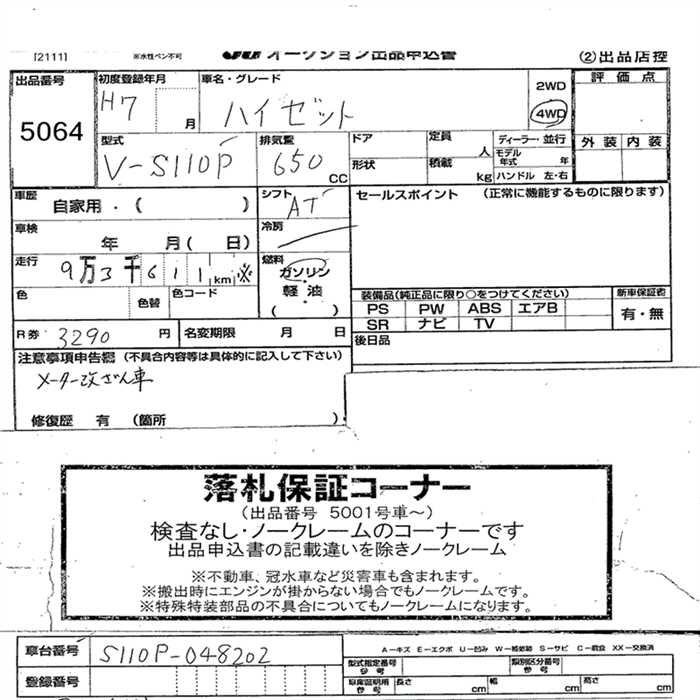 [2111] ※水性ペン不可 JU オークション出品申込書 (2)出品店控
出品番号 初度登録年月 車名・グレード 2WD 評価点
5064 H7 月 ハイゼット 4WD
型式 排気量 ドア 定員 人 ディーラー・並行 外装 内装
V-S110P 650 CC 形状 積載 kg モデル年式 年
ハンドル 左・右
車歴 シフト セールスポイント (正常に機能するものに限ります)
自家用・( ) AT
車検 年 月( 日) 冷房
走行 9万3千611km ※ 燃料 ガソリン・軽油 ( )
色 色替 色コード
装備品(純正品に限り○をつけてください) 新車保証書
PS PW ABS エアB 有・無
SR ナビ TV
R券 3290 円 名変期限 月 日 後日品
注意事項申告欄 (不具合内容等は具体的に記入して下さい)
メーター改ざん車
修復歴 有 (箇所 )
落札保証コーナー
(出品番号 5001号車〜)
検査なし・ノークレームのコーナーです
出品申込書の記載違いを除きノークレーム
※不動車、冠水車など災害車も含まれます。
※搬出時にエンジンが掛からない場合でもノークレームです。
※特殊特装部品の不具合についてもノークレームになります。
車台番号 S110P-048202 A−キズ E−エクボ U−凹み W−補修跡 S−サビ C−腐食 XX−交換済
登録番号 型式指定番号 参考 類別区分番号 参考
車庫証明用 参考 長さ cm 幅 cm 高さ cm